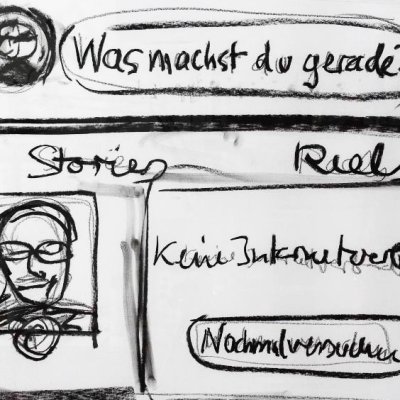 Was machst du gerade?
Stories Reel
Kein Internetver
Nochmal versuchen